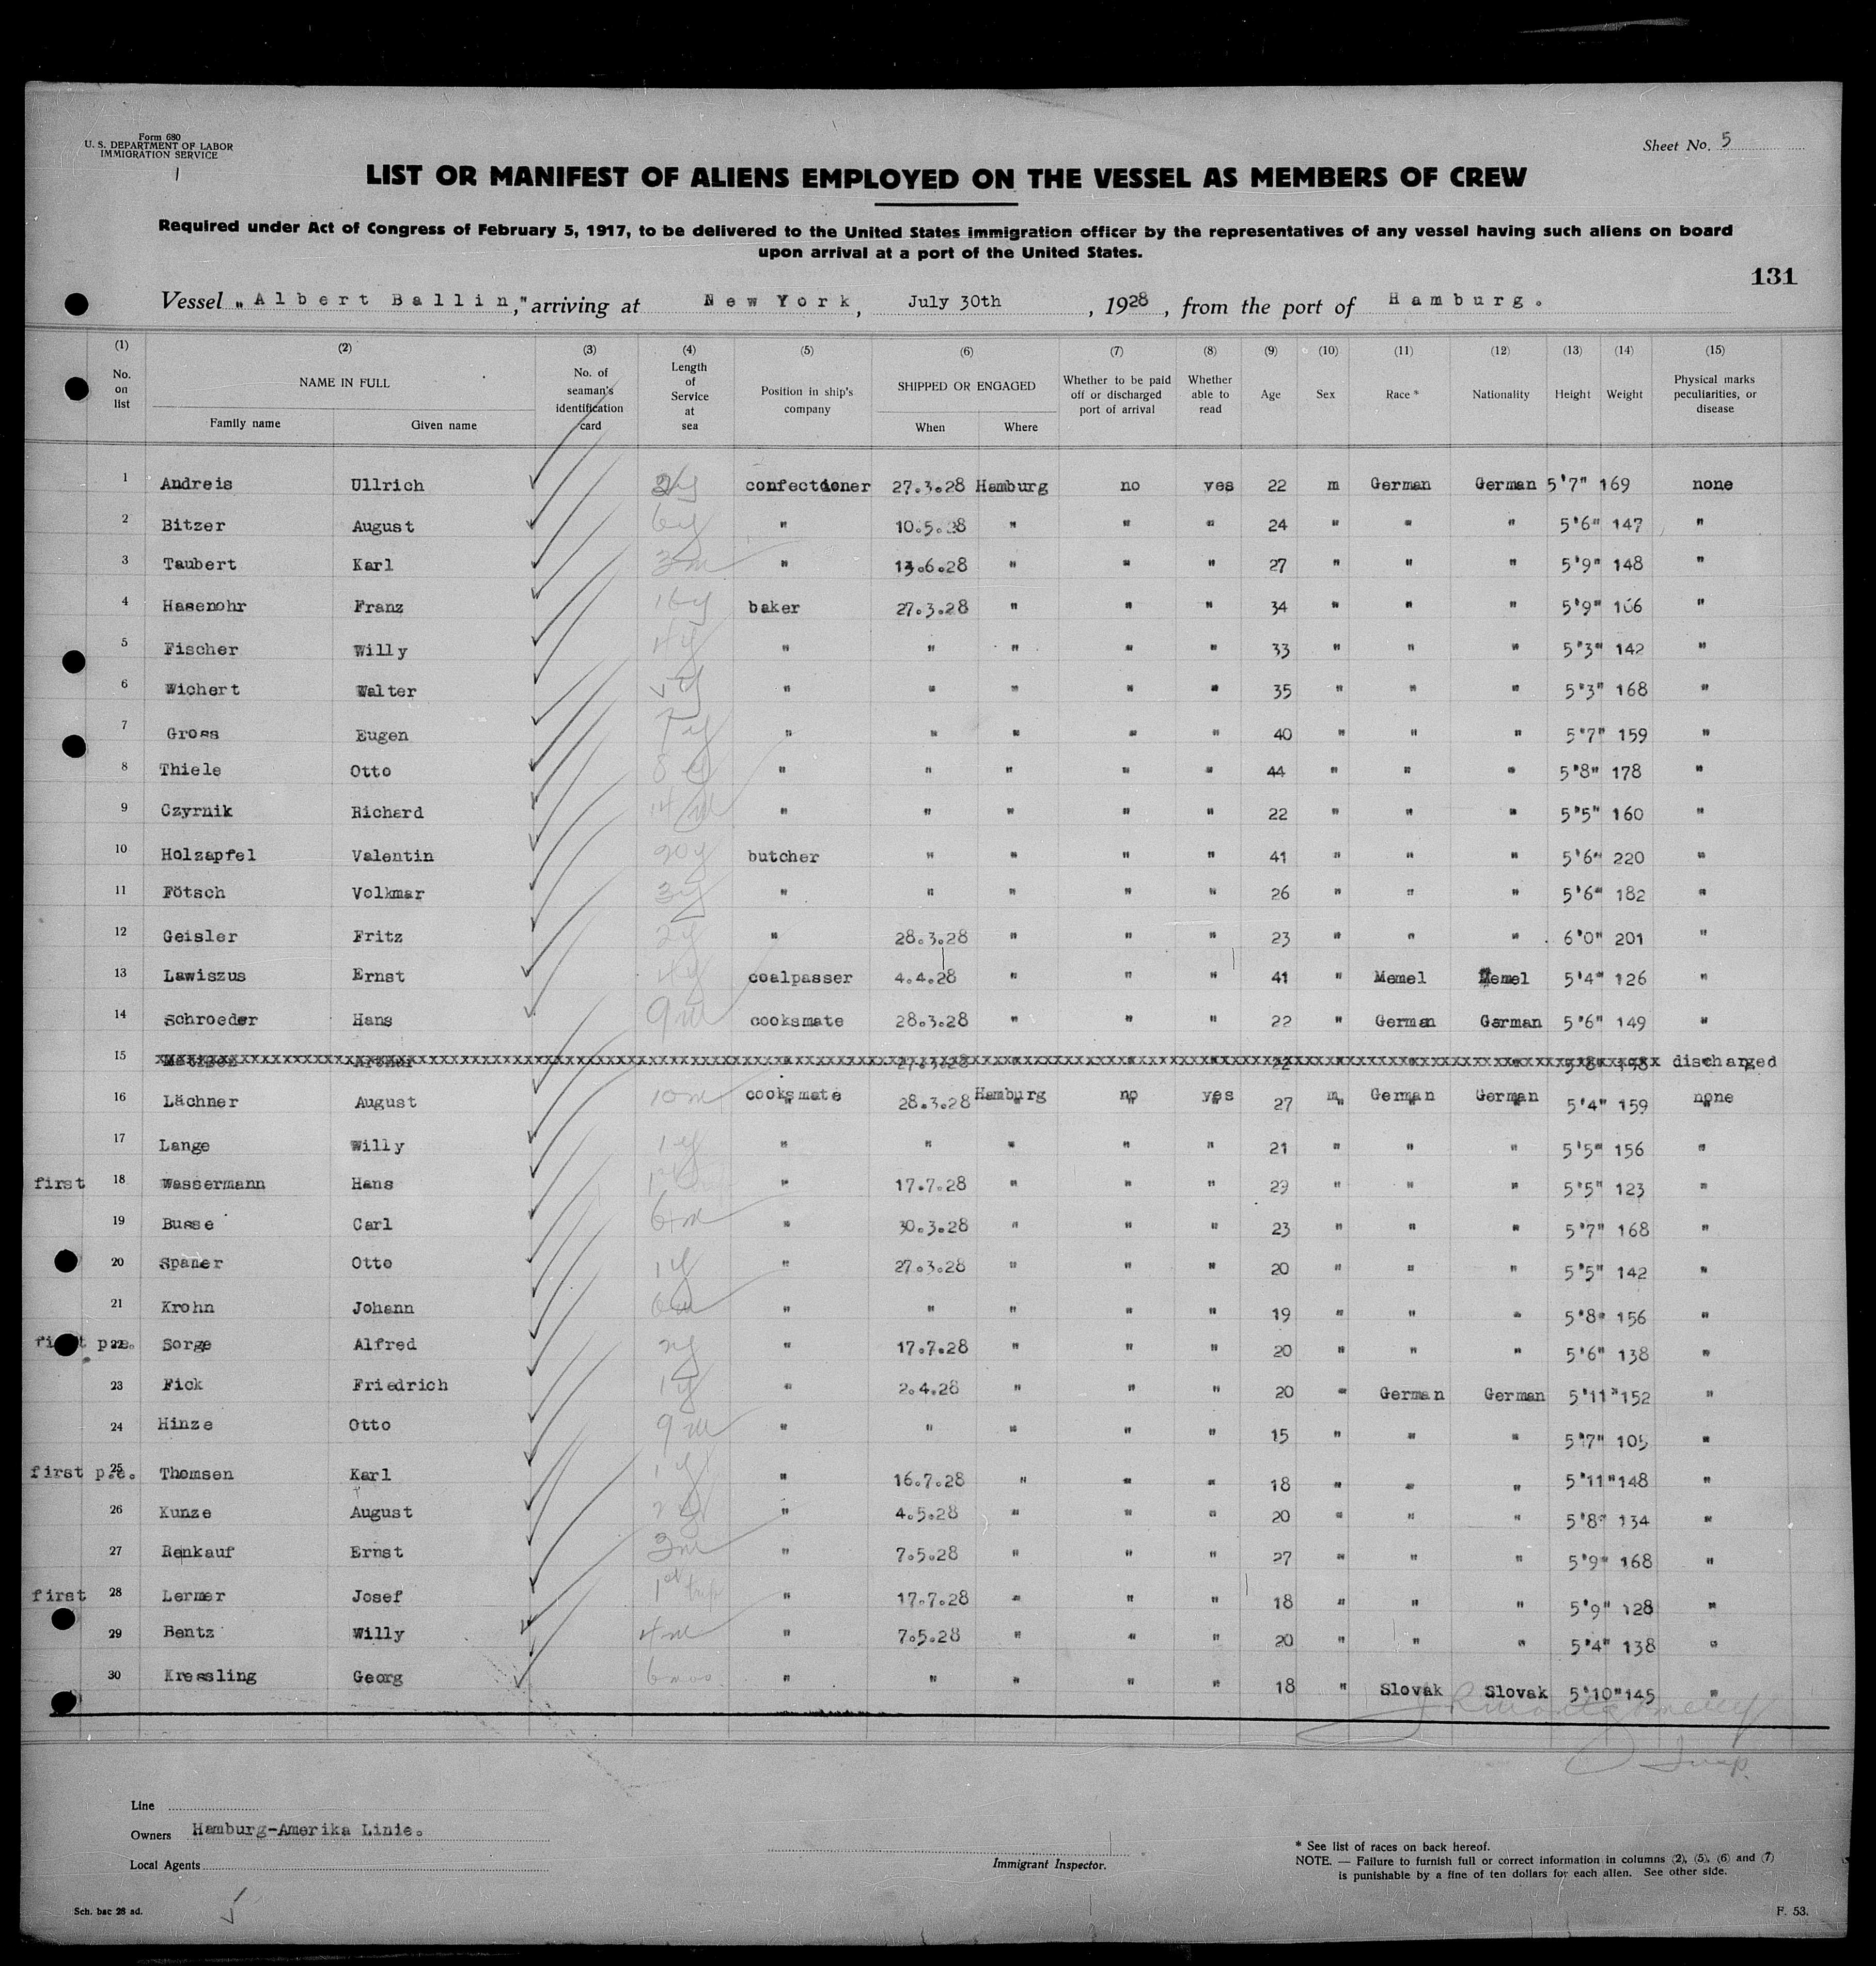 Form 680
U. S. DEPARTMENT OF LABOR
IMMIGRATION SERVICE
Sheet No. 5
LIST OR MANIFEST OF ALIENS EMPLOYED ON THE VESSEL AS MEMBERS OF CREW
Required under Act of Congress of February 5, 1917, to be delivered to the United States immigration officer by the representatives of any vessel having such aliens on board
upon arrival at a port of the United States.
131
Vessel "Albert Ballin," arriving at New York, July 30th, 1928, from the port of Hamburg.
(1) (2) (3) (4) (5) (6) (7) (8) (9) (10) (11) (12) (13) (14) (15)
No. on list NAME IN FULL Family name Given name No. of seaman's identification card Length of Service at sea Position in ship's company SHIPPED OR ENGAGED When Where Whether to be paid off or discharged port of arrival Whether able to read Age Sex Race * Nationality Height Weight Physical marks peculiarities, or disease
1 Andreis Ullrich 2y confectioner 27.3.28 Hamburg no yes 22 m German German 5'7" 169 none
2 Bitzer August 6y " 10.5.28 " " " 24 " " " 5'6" 147 "
3 Taubert Karl 3m " 13.6.28 " " " 27 " " " 5'9" 148 "
4 Hasenohr Franz 16y baker 27.3.28 " " " 34 " " " 5'9" 166 "
5 Fischer Willy " " " " " 33 " " " 5'3" 142 "
6 Wichert Walter " " " " " 35 " " " 5'3" 168 "
7 Gross Eugen 7y " " " " " 40 " " " 5'7" 159 "
8 Thiele Otto 8y " " " " " 44 " " " 5'8" 178 "
9 Czyrnik Richard 14m " " " " " 22 " " " 5'5" 160 "
10 Holzapfel Valentin 20y butcher " " " " 41 " " " 5'6" 220 "
11 Fötsch Volkmar 3y " " " " " 26 " " " 5'6" 182 "
12 Geisler Fritz 2y " 28.3.28 " " " 23 " " " 6'0" 201 "
13 Lawiszus Ernst 4y coalpasser 4.4.28 " " " 41 " Memel Memel 5'4" 126 "
14 Schroeder Hans 9m cooksmate 28.3.28 " " " 22 " German German 5'6" 149 "
15 27.3.28 22 discharged
16 Lächner August 10m cooksmate 28.3.28 Hamburg no yes 27 m German German 5'4" 159 none
17 Lange Willy 1y " " " " " 21 " " " 5'5" 156 "
first 18 Wassermann Hans " 17.7.28 " " " 23 " " " 5'5" 123 "
19 Busse Carl 6m " 30.3.28 " " " 23 " " " 5'7" 168 "
20 Spaner Otto 1y " 27.3.28 " " " 20 " " " 5'5" 142 "
21 Krohn Johann 6m " " " " " 19 " " " 5'8" 156 "
first p.e. 22 Sorge Alfred 2y " 17.7.28 " " " 20 " " " 5'6" 138 "
23 Fick Friedrich 1y " 2.4.28 " " " 20 " German German 5'11" 152 "
24 Hinze Otto 9m " " " " " 15 " " " 5'7" 105 "
first p.e. 25 Thomsen Karl 1y " 16.7.28 " " " 18 " " " 5'11" 148 "
26 Kunze August 2y " 4.5.28 " " " 20 " " " 5'8" 134 "
27 Renkauf Ernst 3m " 7.5.28 " " " 27 " " " 5'9" 168 "
first 28 Lermer Josef 1st trip " 17.7.28 " " " 18 " " " 5'9" 128 "
29 Bentz Willy 4m " 7.5.28 " " " 20 " " " 5'4" 138 "
30 Kressling Georg 6mos. " " " " " 18 " Slovak Slovak 5'10" 145 "
Line
Owners Hamburg-Amerika Linie.
Local Agents
Immigrant Inspector.
* See list of races on back hereof.
NOTE. — Failure to furnish full or correct information in columns (2), (5), (6) and (7)
is punishable by a fine of ten dollars for each alien. See other side.
Sch. bac 28 ad.
F. 53.